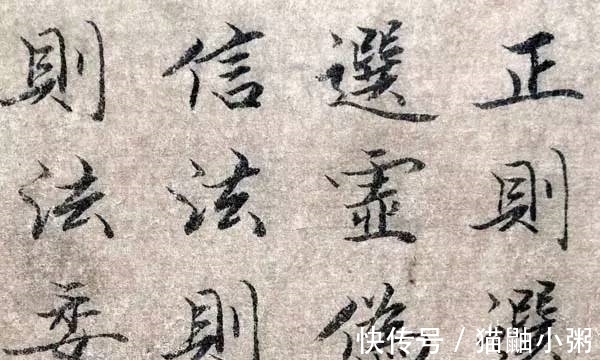 正則選
選虛
信法則
則法委
快传号 / 猫鼬小粥